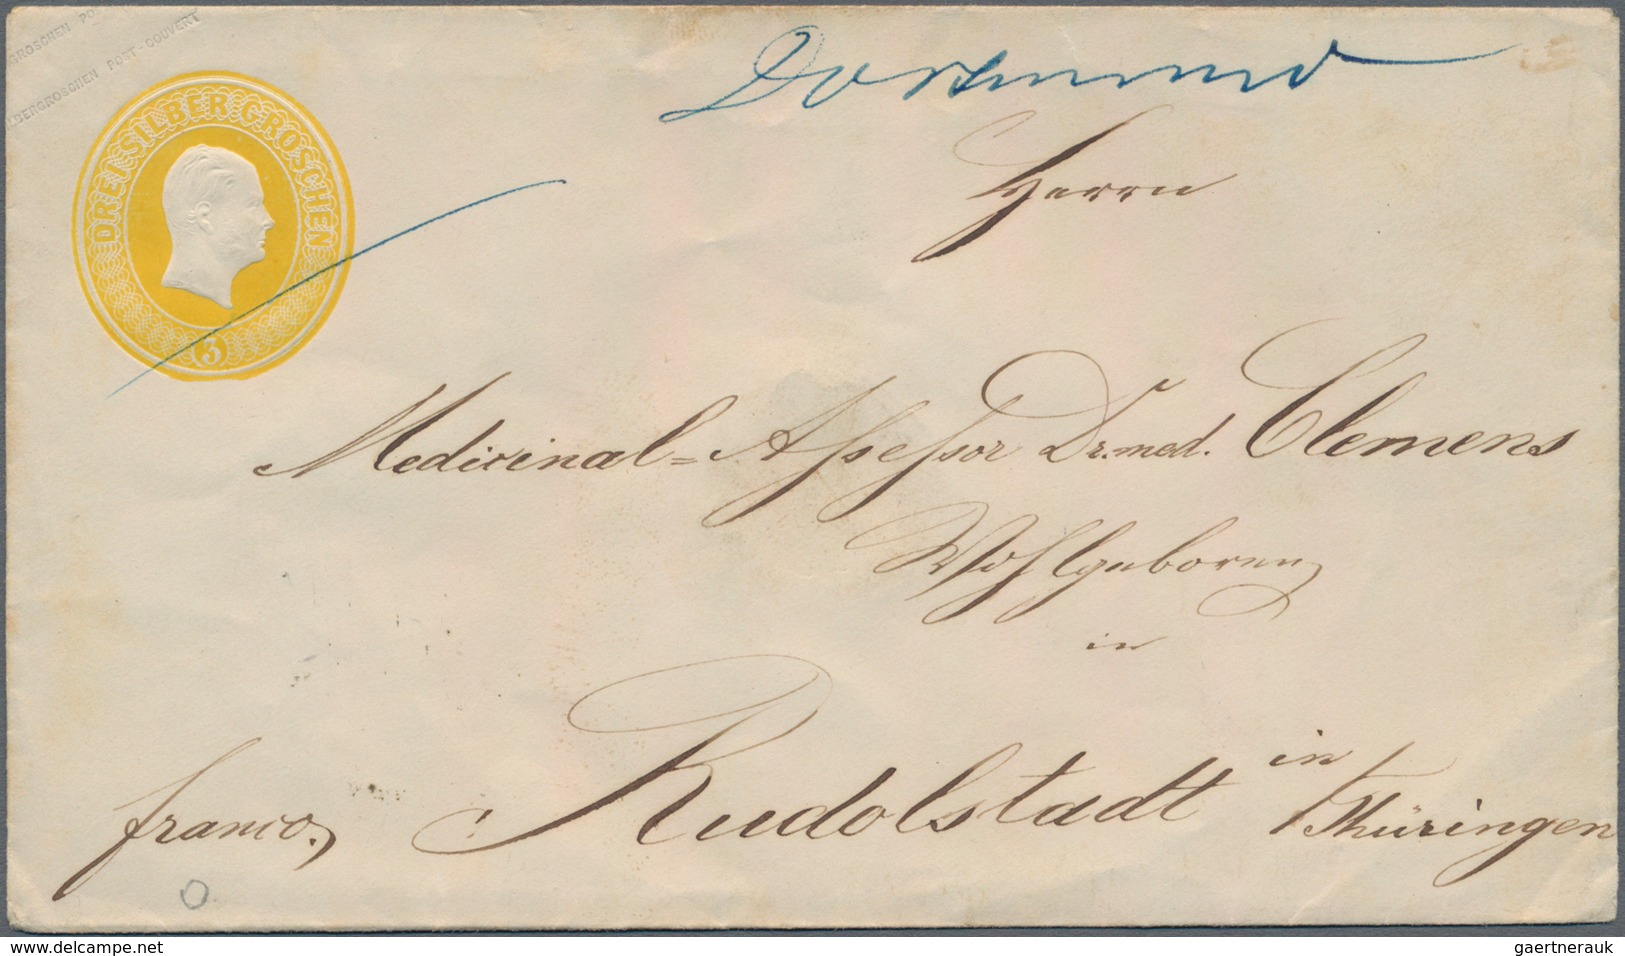 GROSCHEN PO
LBERGROSCHEN POST-COUVERT
DREI SILBER GROSCHEN
3
Dortmund
Herrn
Medicinal=Assessor Dr. med. Clemens
Wohlgeboren
in
franco.
Rudolstadt in
Thüringen
delcampe.net
gaertnerauk